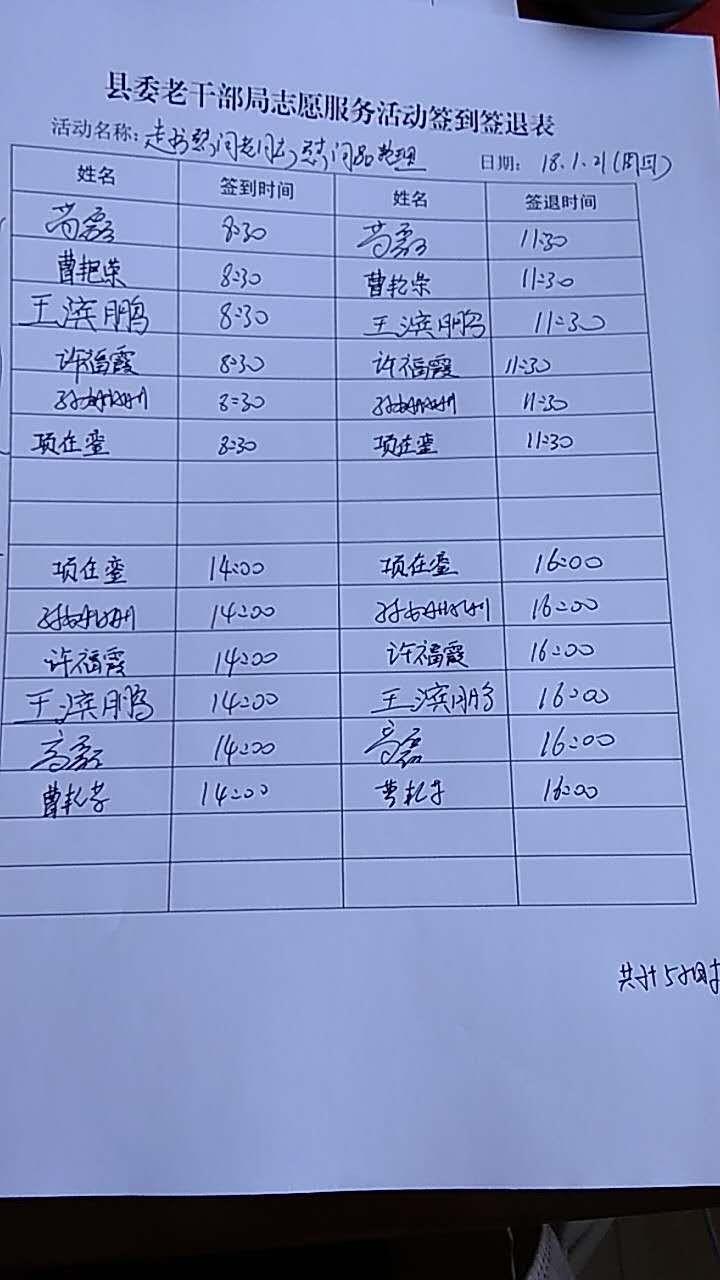 县委老干部局志愿服务活动签到签退表
活动名称: 走访慰问老同志慰问品整理 日期: 18.1.21(周日)
姓名 签到时间 姓名 签退时间
高磊 8:30 高磊 11:30
曹艳荣 8:30 曹 11:30
王滨鹏 8:30 王滨鹏 11:30
许福霞 8:30 许福霞 11:30
8:30 11:30
项在銮 8:30 项在銮 11:30
项在銮 14:00 项在銮 16:00
14:00 16:00
许福霞 14:00 许福霞 16:00
王滨鹏 14:00 王滨鹏 16:00
高磊 14:00 高磊 16:00
曹 14:00 16:00
共计5小时